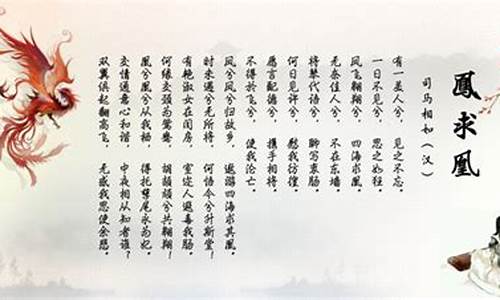 鳳求凰
司马相如（汉）
有一美人兮，见之不忘。
一日不见兮，思之如狂。
凤飞翱翔兮，四海求凰。
无奈佳人兮，不在东墙。
将琴代语兮，聊写衷肠。
何日见许兮，慰我彷徨。
愿言配德兮，携手相将。
不得於飞兮，使我沦亡。
凤兮凤兮归故乡，遨游四海求其凰。
时未遇兮无所将，何悟今兮升斯堂！
有艳淑女在闺房，室迩人遐毒我肠。
何缘交颈为鸳鸯，胡颉颃兮共翱翔！
凰兮凰兮从我栖，得托孳尾永为妃。
交情通意心和谐，中夜相从知者谁？
双翼俱起翻高飞，无感我思使余悲。